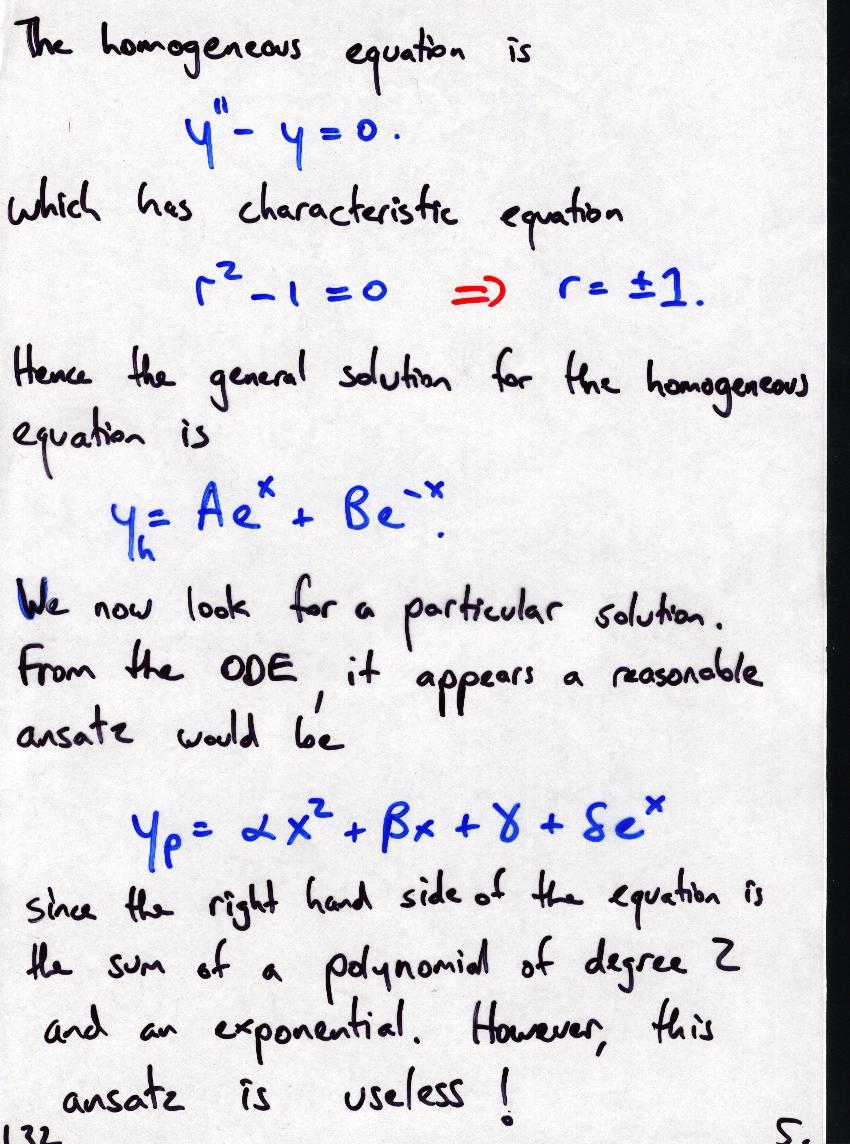 The homogeneous equation is
y'' - y = 0.
which has characteristic equation
r² - 1 = 0 ⇒ r = ±1.
Hence the general solution for the homogeneous
equation is
y_h = Ae^x + Be^-x.
We now look for a particular solution.
From the ODE, it appears a reasonable
ansatz would be
y_p = αx² + βx + γ + δe^x
since the right hand side of the equation is
the sum of a polynomial of degree 2
and an exponential. However, this
ansatz is useless!
132 5.